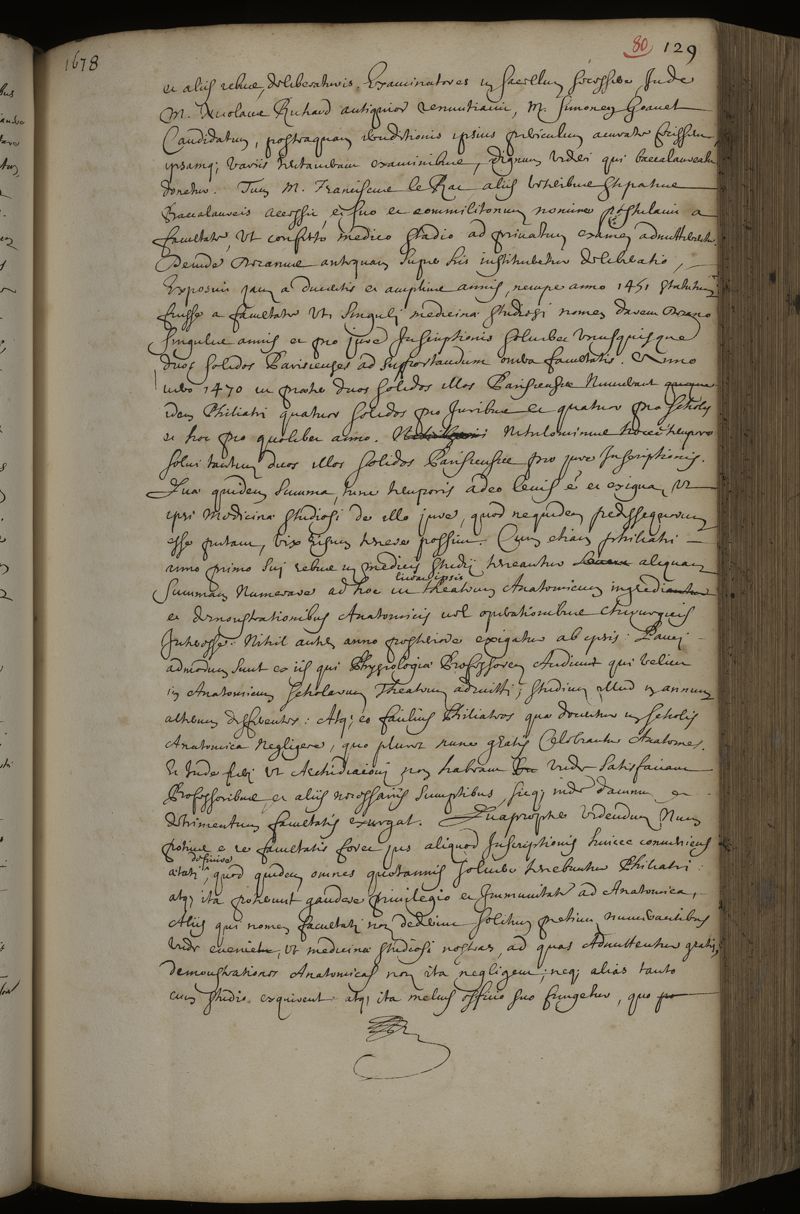 1678
80 129
et aliis rebus deliberaturis. Examinatores in sacellum secessere, Inde
M. Nicolaus Richard antiquior renuntiavit, M. Simonem Boanet
Candidatum, postquam eruditionis ipsius periculum accurate fecissent,
ipsamq; variis tentassent examinibus, dignum videri qui baccalaureatu
donetur. Tum M. Franciscus le Rat aliis stipatus
Baccalaureis accessit, et suo et commilitonum nomine postulavit a
facultate, ut confecto medico stadio ad privatum examen admitterentur
Deinde Decanus antequam super his institueretur deliberatio,
Exposuit jam a ducentis et amplius annis, nempe anno 1451 statutum
fuisse a facultate ut singuli medicinae studiosi nomen darent Decano
singulis annis et pro jure Inscriptionis solveret unusquisque
duos solidos Parisienses ad supportandum onera facultatis. Anno
vero 1470 praeter duos solidos illos Parisienses numerabant
idem Philiatri quatuor solidos pro Juribus et quatuor pro scholis
et hoc pro quolibet anno. Nihilominus hocce tempore
solvi tantum duos illos solidos Parisienses pro jure Inscriptionis.
Quae quidem summa, hinc temporis adeo levis e et exigua, ut
ipsi Medicinae studiosi de illo jure, quod nequidem
esse putant, vix dignum possint. Cum etiam philiatri
anno primo sui rebus in medicis studii teneantur aliquam
summam numerare ad hoc ut in theatrum Anatomicum ingrediantur
liceat ipsis
et demonstrationibus Anatomicis vel operationibus chirurgicis
Interesse. Nihil autem anno posteriore exigatur ab ipsis: Pauci
admodum sunt ex iis qui Physiologiae Professorem Audiunt qui velint
in Anatomicum scholarum Theatrum admitti; studium illud in annum
alterum differentes: Atq; eo facilius Philiatros quae docentur in scholis
Anatomica negligere, quo plures nunc gratis Celebrantur Anatomes.
Et Inde fieri ut Archidiaconi non habeant unde satisfaciant
Professoribus et aliis necessariis sumptibus, sicq; inde damnum et
detrimentum facultatis exurgat. Quapropter videndum Num
potius e re facultatis foret jus aliquod Inscriptionis huicce conveniens
aetati definire, quod quidem omnes quotannis solvere tenebuntur Philiatri:
atq; ita poterunt gaudere privilegio et Immunitate ad Anatomica,
Aliis qui nomen facultati non dederint solitum pretium numerantibus
Unde eveniet, ut medicinae studiosi nostras, ad quas Admittentur gratis,
demonstrationes Anatomicas non ita negligent; neq; alias tanto
cum studio exquirent atq; ita melius officio suo fungetur, quo